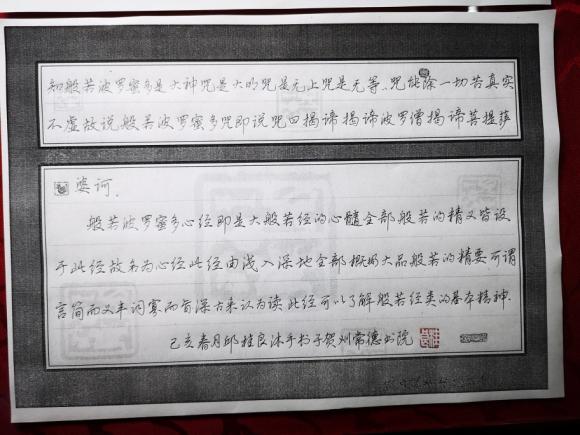 知般若波罗蜜多是大神咒是大明咒是无上咒是无等、咒能除一切苦真实
不虚故说般若波罗蜜多咒即说咒曰揭谛揭谛波罗僧揭谛菩提萨
婆诃.
般若波罗蜜多心经即是大般若经的心髓全部般若的精义皆设
于此经故名为心经此经由浅入深地全部概明大品般若的精要可谓
言简而义丰词寡而旨深古来认为读此经可以了解般若经类的基本精神.
己亥春月邱桂良沐手书于贺州常德书院